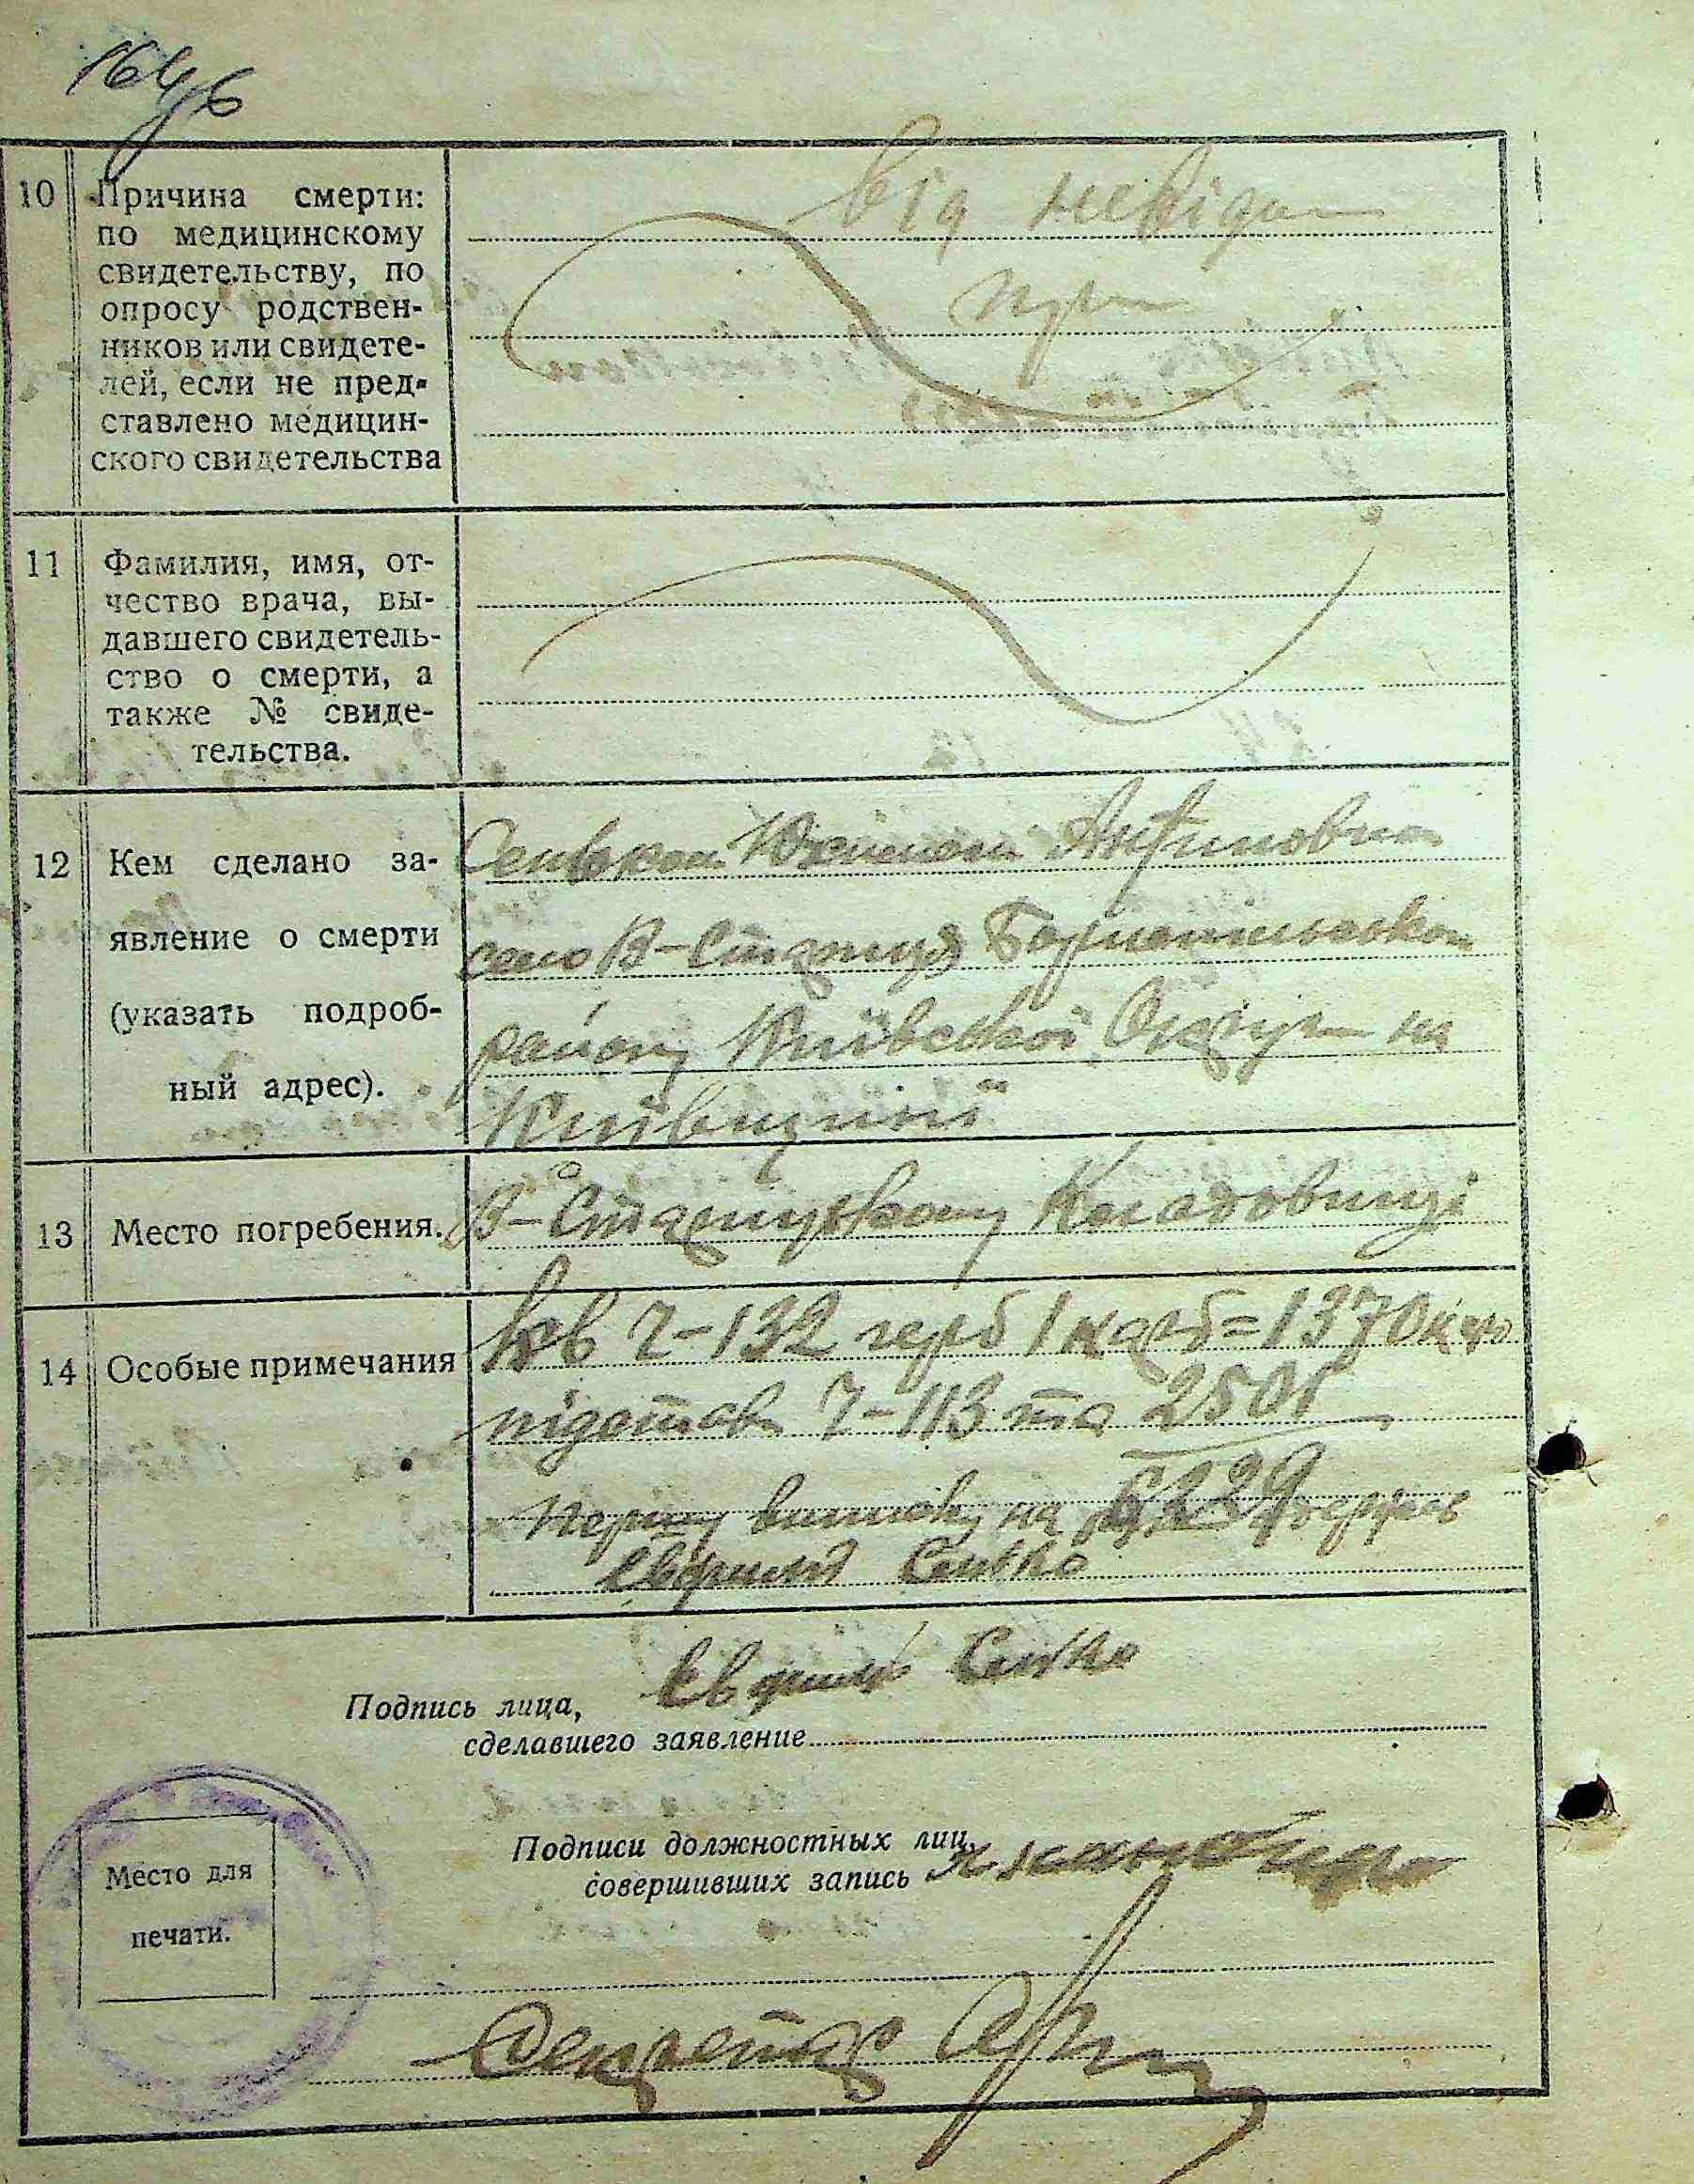 10 Причина смерти:
по медицинскому
свидетельству, по
опросу родствен-
ников или свидете-
лей, если не пред-
ставлено медицин-
ского свидетельства
від невідом
при
11 Фамилия, имя, от-
чество врача, вы-
давшего свидетель-
ство о смерти, а
также № свиде-
тельства.
12 Кем сделано за-
явление о смерти
(указать подроб-
ный адрес).
село В-Стариця Бориспільском
району Київської Округи на
Київщині
13 Место погребения.
В-Старицькому Кладовищі
14 Особые примечания
кв 7-132 герб 1 карб = 1370
підстав 7-113 та 250г
Першу виписку на
Сенько
Сенько
Подпись лица,
сделавшего заявление
Подписи должностных лиц,
совершивших запись
Место для
печати.
Секретар